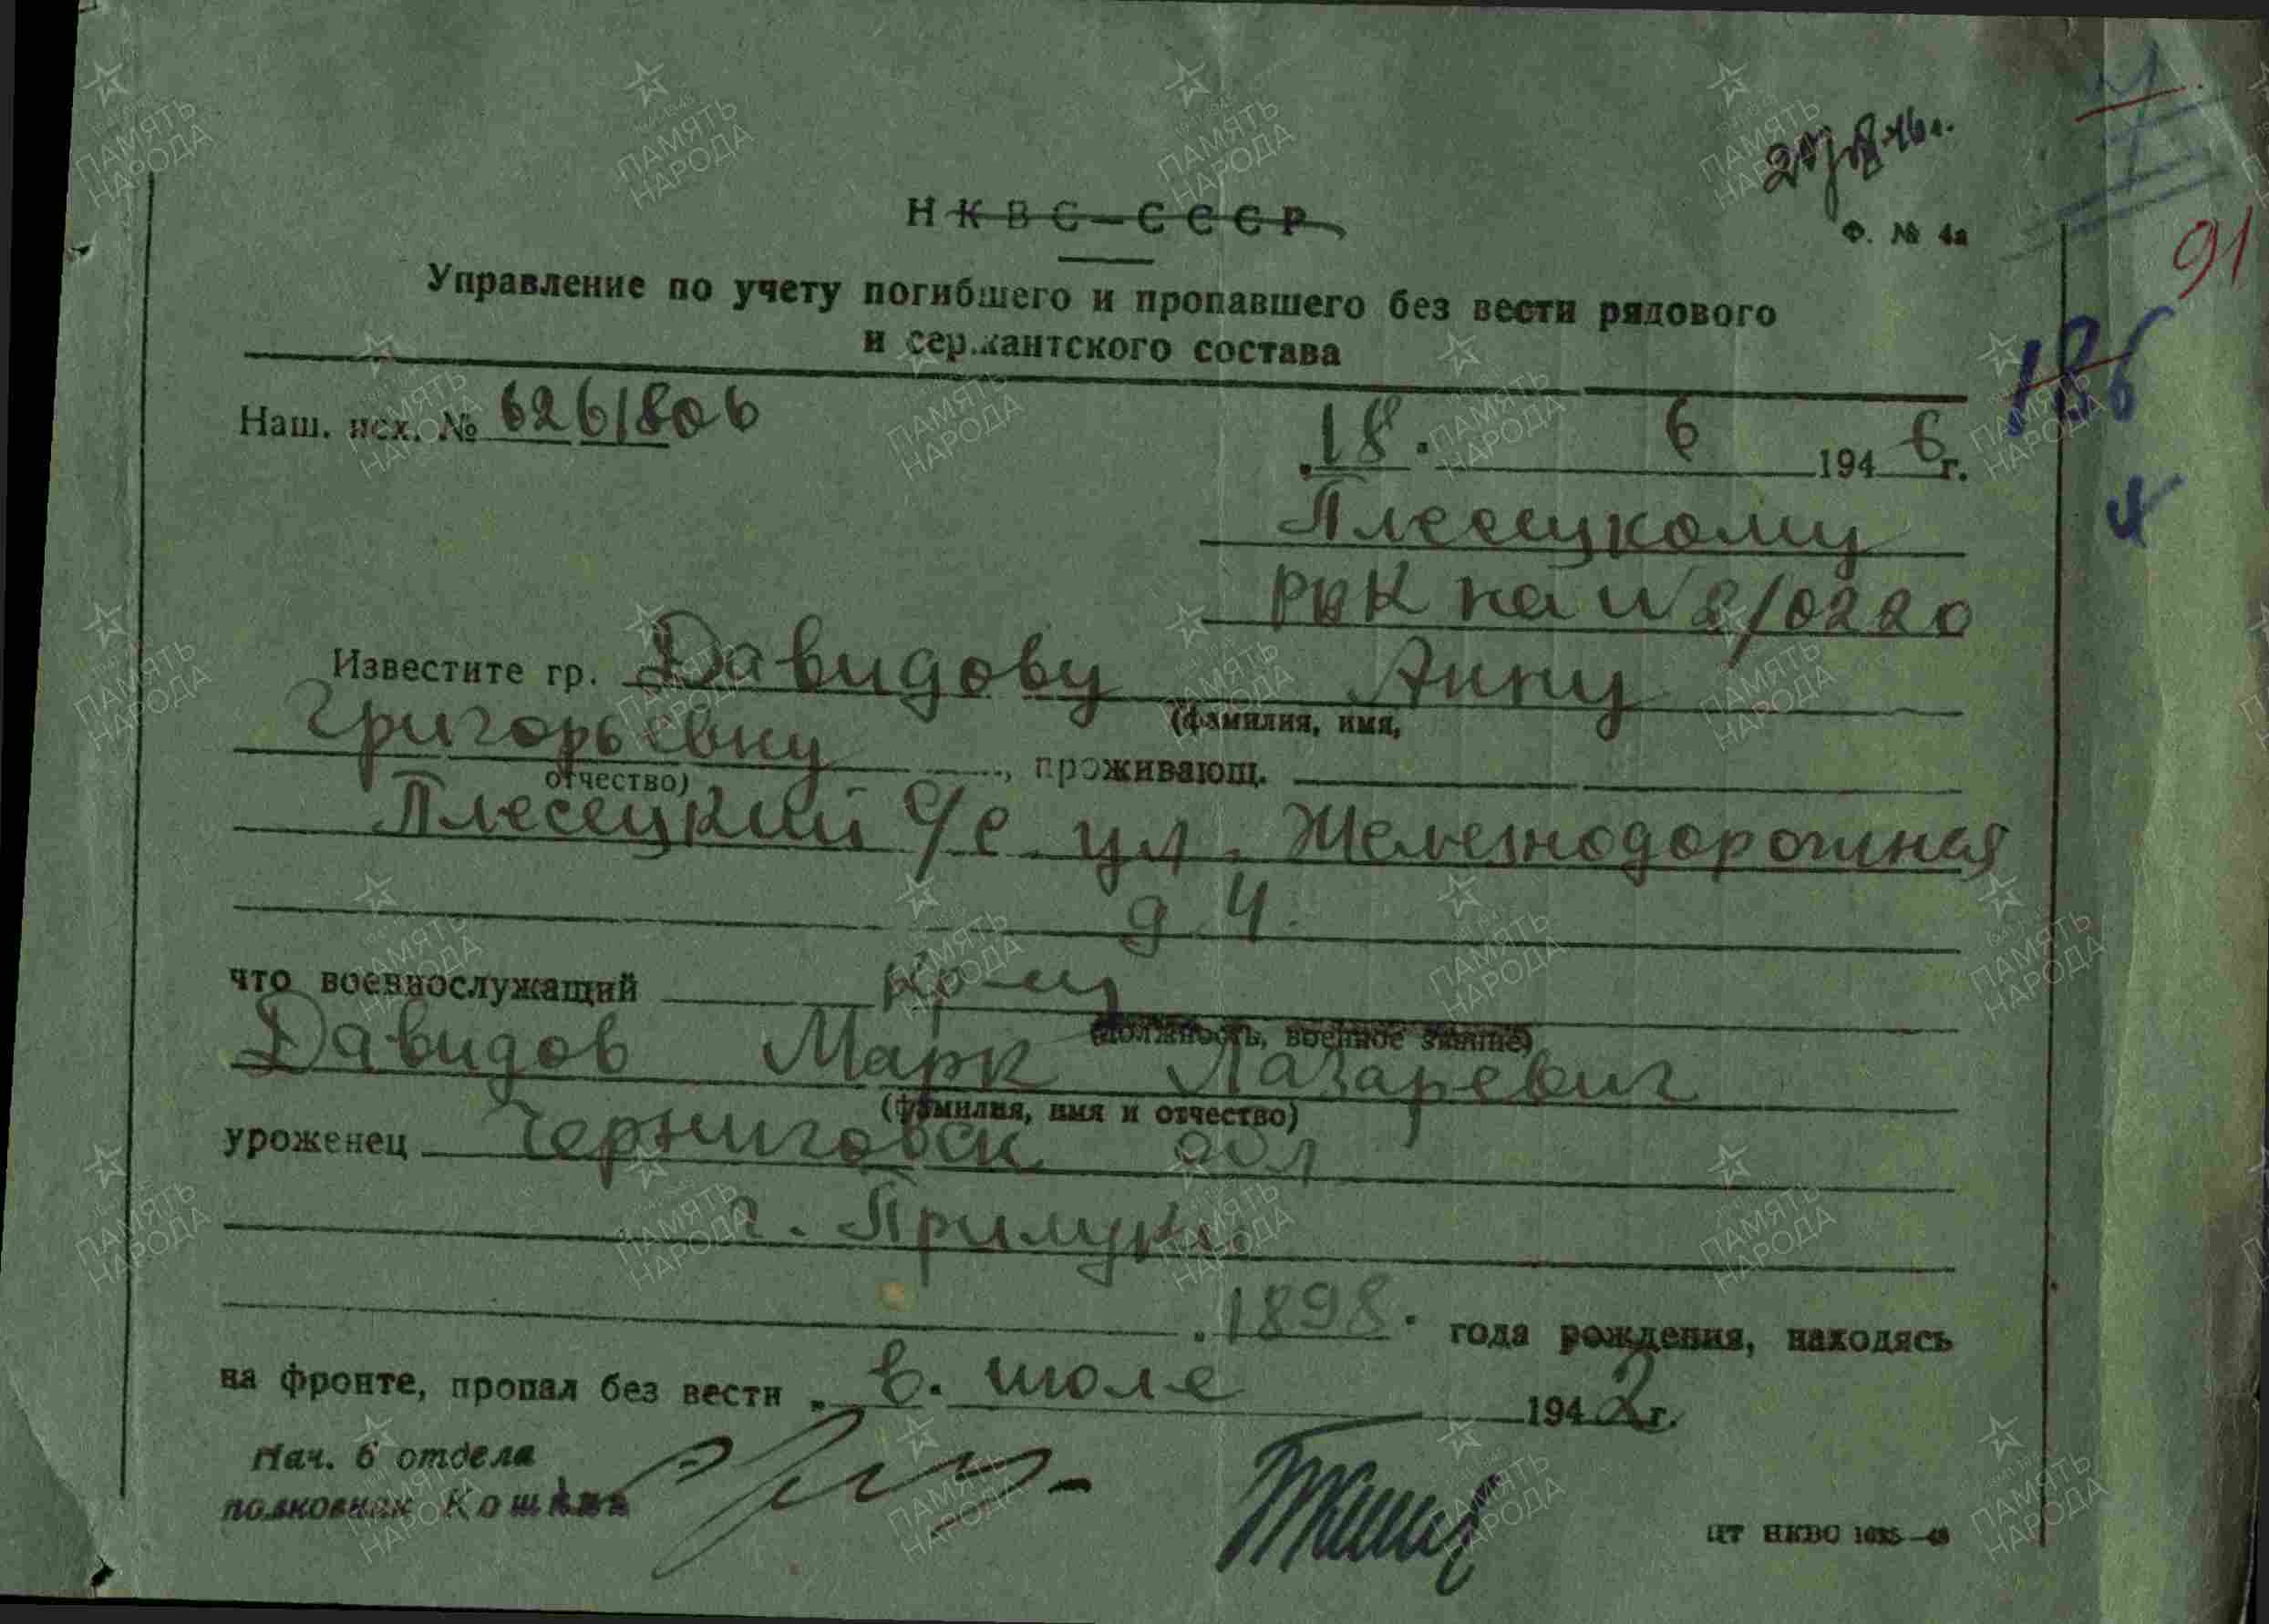 Н К В С — С С С Р
Ф. № 4а
91
186
Управление по учету погибшего и пропавшего без вести рядового
и сержантского состава
Наш. исх. № 626/806
18. 6 1946 г.
Плесецкому
РВК на № 2/0220
Известите гр. Давидову Анну
(фамилия, имя,
Григорьевну, проживающ.
отчество)
Плесецкий с/с ул. Железнодорожная
д 4.
что военнослужащий кр-ец
(должность, военное звание)
Давидов Марк Лазаревич
(фамилия, имя и отчество)
уроженец Черниговск обл
г. Прилуки
1898. года рождения, находясь
на фронте, пропал без вести в. июле 1942 г.
Нач. 6 отдела
полковник
ЦТ НКВО
ПАМЯТЬ
НАРОДА